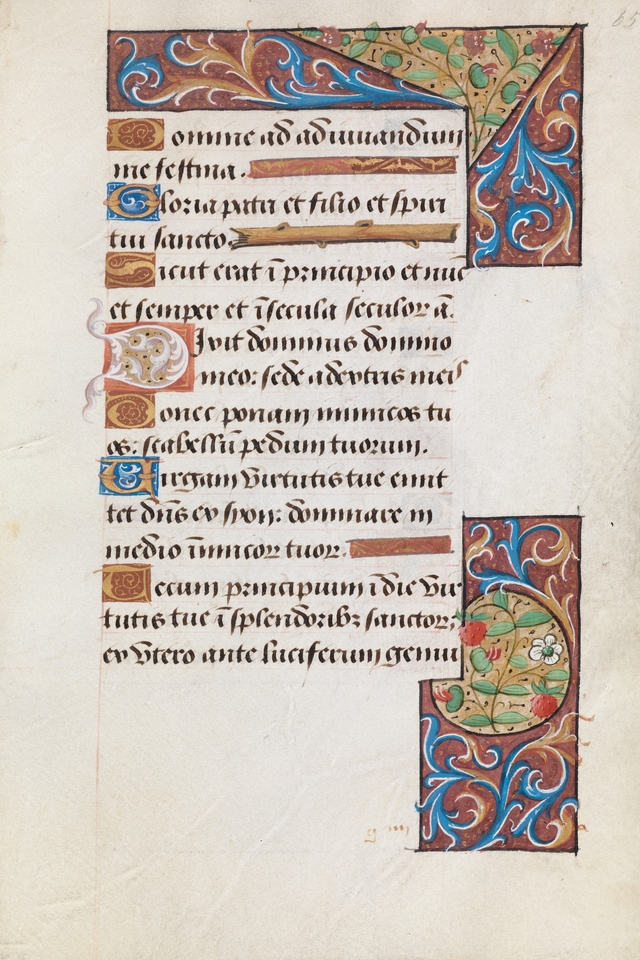 65
Domine ad adiuuandum
me festina.
Gloria patri et filio et spiri
tui sancto.
Sicut erat ī principio et nūc
et semper et ī secula seculoꝝ a.
Dixit dominus domino
meo: sede a dextris meis
Donec ponam inimicos tu
os: scabellū pedum tuorum.
Uirgam virtutis tue emit
tet dn̄s ex syon: dominare in
medio inimicoꝝ tuoꝝ.
Tecum principium ī die vir
tutis tue ī splendoribꝫ sanctoꝝ:
ex vtero ante luciferum genui
g iiii